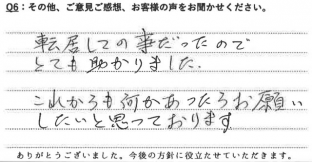 Q6：その他、ご意見ご感想、お客様の声をお聞かせください。
転居しての事だったので
とても助かりました.
これからも何かあったらお願い
したいと思っております
ありがとうございました。今後の方針に役立たせていただきます。